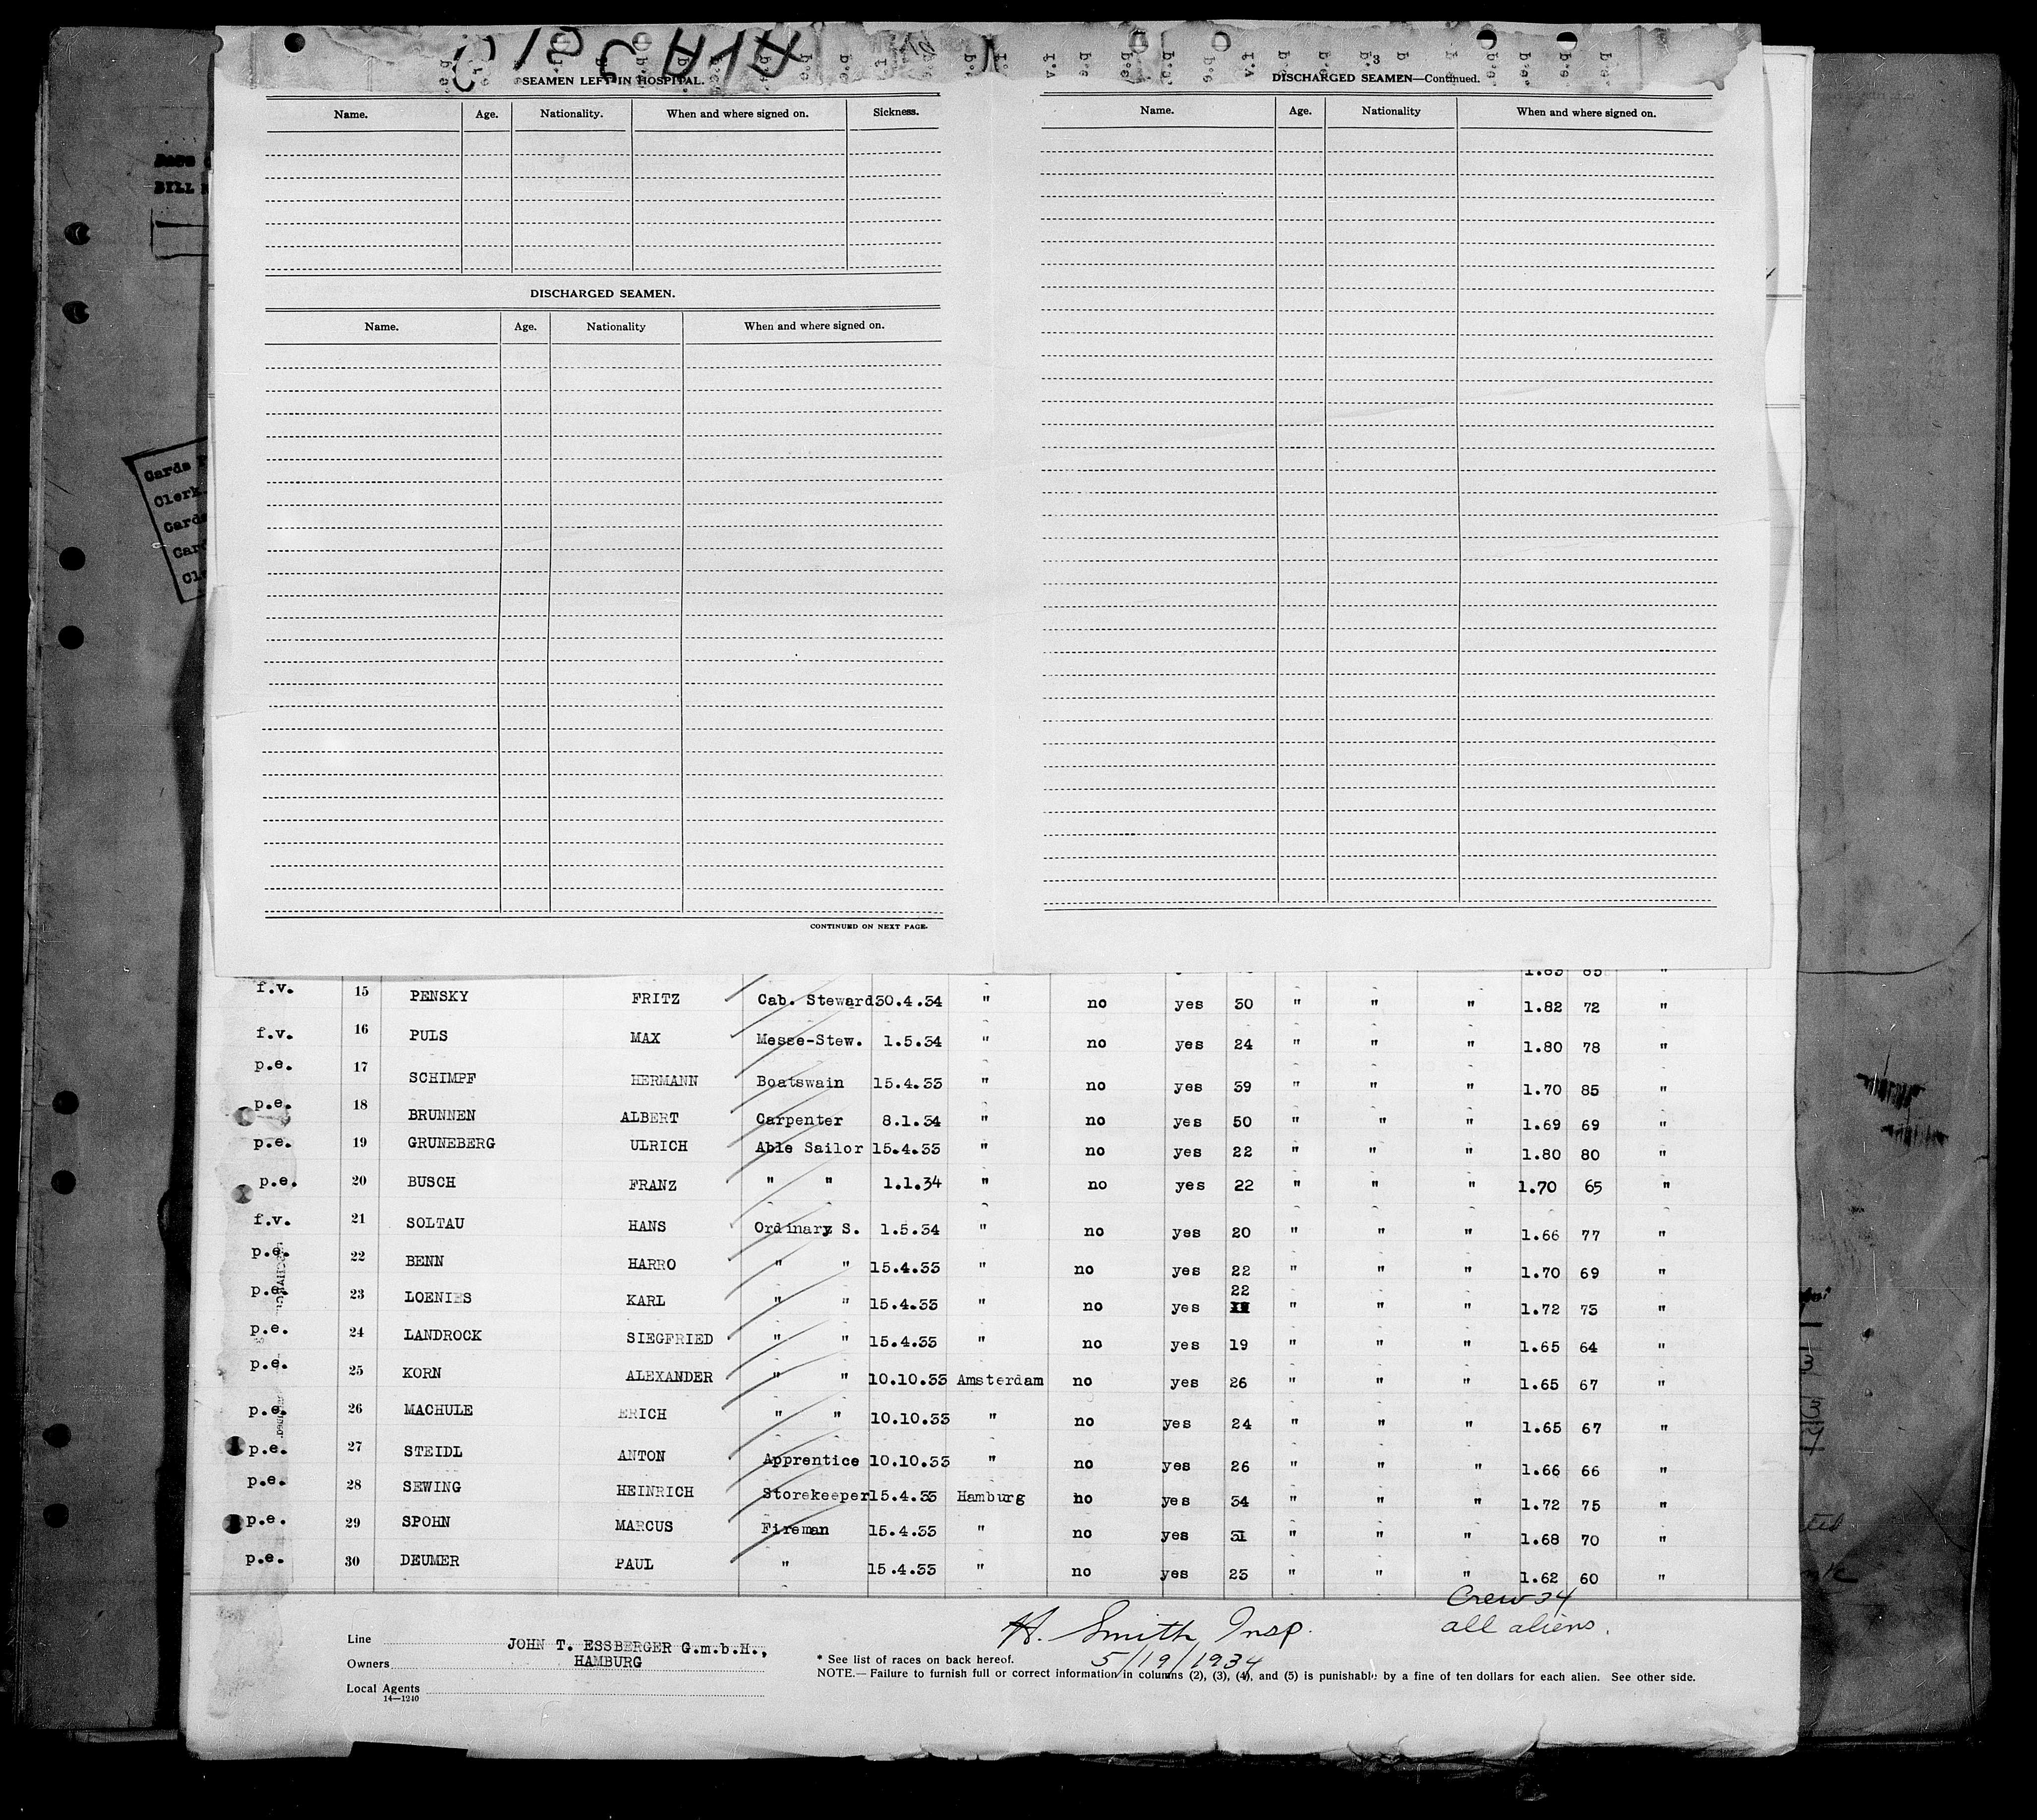 3
SEAMEN LEFT IN HOSPITAL.
Name. Age. Nationality. When and where signed on. Sickness.
DISCHARGED SEAMEN.
Name. Age. Nationality When and where signed on.
CONTINUED ON NEXT PAGE.
DISCHARGED SEAMEN—Continued.
Name. Age. Nationality When and where signed on.
BILL
Cards
Clerk
Cards
1.83 85 "
f.v. 15 PENSKY FRITZ Cab. Steward 30.4.34 " no yes 30 " " " 1.82 72 "
f.v. 16 PULS MAX Messe-Stew. 1.5.34 " no yes 24 " " " 1.80 78 "
p.e. 17 SCHIMPF HERMANN Boatswain 15.4.33 " no yes 39 " " " 1.70 85 "
p.e. 18 BRUNNEN ALBERT Carpenter 8.1.34 " no yes 50 " " " 1.69 69 "
p.e. 19 GRUNEBERG ULRICH Able Sailor 15.4.33 " no yes 22 " " " 1.80 80 "
p.e. 20 BUSCH FRANZ " " 1.1.34 " no yes 22 " " " 1.70 65 "
f.v. 21 SOLTAU HANS Ordinary S. 1.5.34 " no yes 20 " " " 1.66 77 "
p.e. 22 BENN HARRO " " 15.4.33 " no yes 22 " " " 1.70 69 "
p.e. 23 LOENIES KARL " " 15.4.33 " no yes 22 " " " 1.72 73 "
p.e. 24 LANDROCK SIEGFRIED " " 15.4.33 " no yes 19 " " " 1.65 64 "
p.e. 25 KORN ALEXANDER " " 10.10.33 Amsterdam no yes 26 " " " 1.65 67 "
p.e. 26 MACHULE ERICH " " 10.10.33 " no yes 24 " " " 1.65 67 "
p.e. 27 STEIDL ANTON Apprentice 10.10.33 " no yes 26 " " " 1.66 66 "
p.e. 28 SEWING HEINRICH Storekeeper 15.4.33 Hamburg no yes 34 " " " 1.72 75 "
p.e. 29 SPOHN MARCUS Fireman 15.4.33 " no yes 31 " " " 1.68 70 "
p.e. 30 DEUMER PAUL " 15.4.33 " no yes 23 " " " 1.62 60 "
Crew 34
all aliens.
H. Smith Insp.
5/19/1934
Line JOHN T. ESSBERGER G.m.b.H.,
Owners HAMBURG
Local Agents
14—1240
* See list of races on back hereof.
NOTE.—Failure to furnish full or correct information in columns (2), (3), (4), and (5) is punishable by a fine of ten dollars for each alien. See other side.